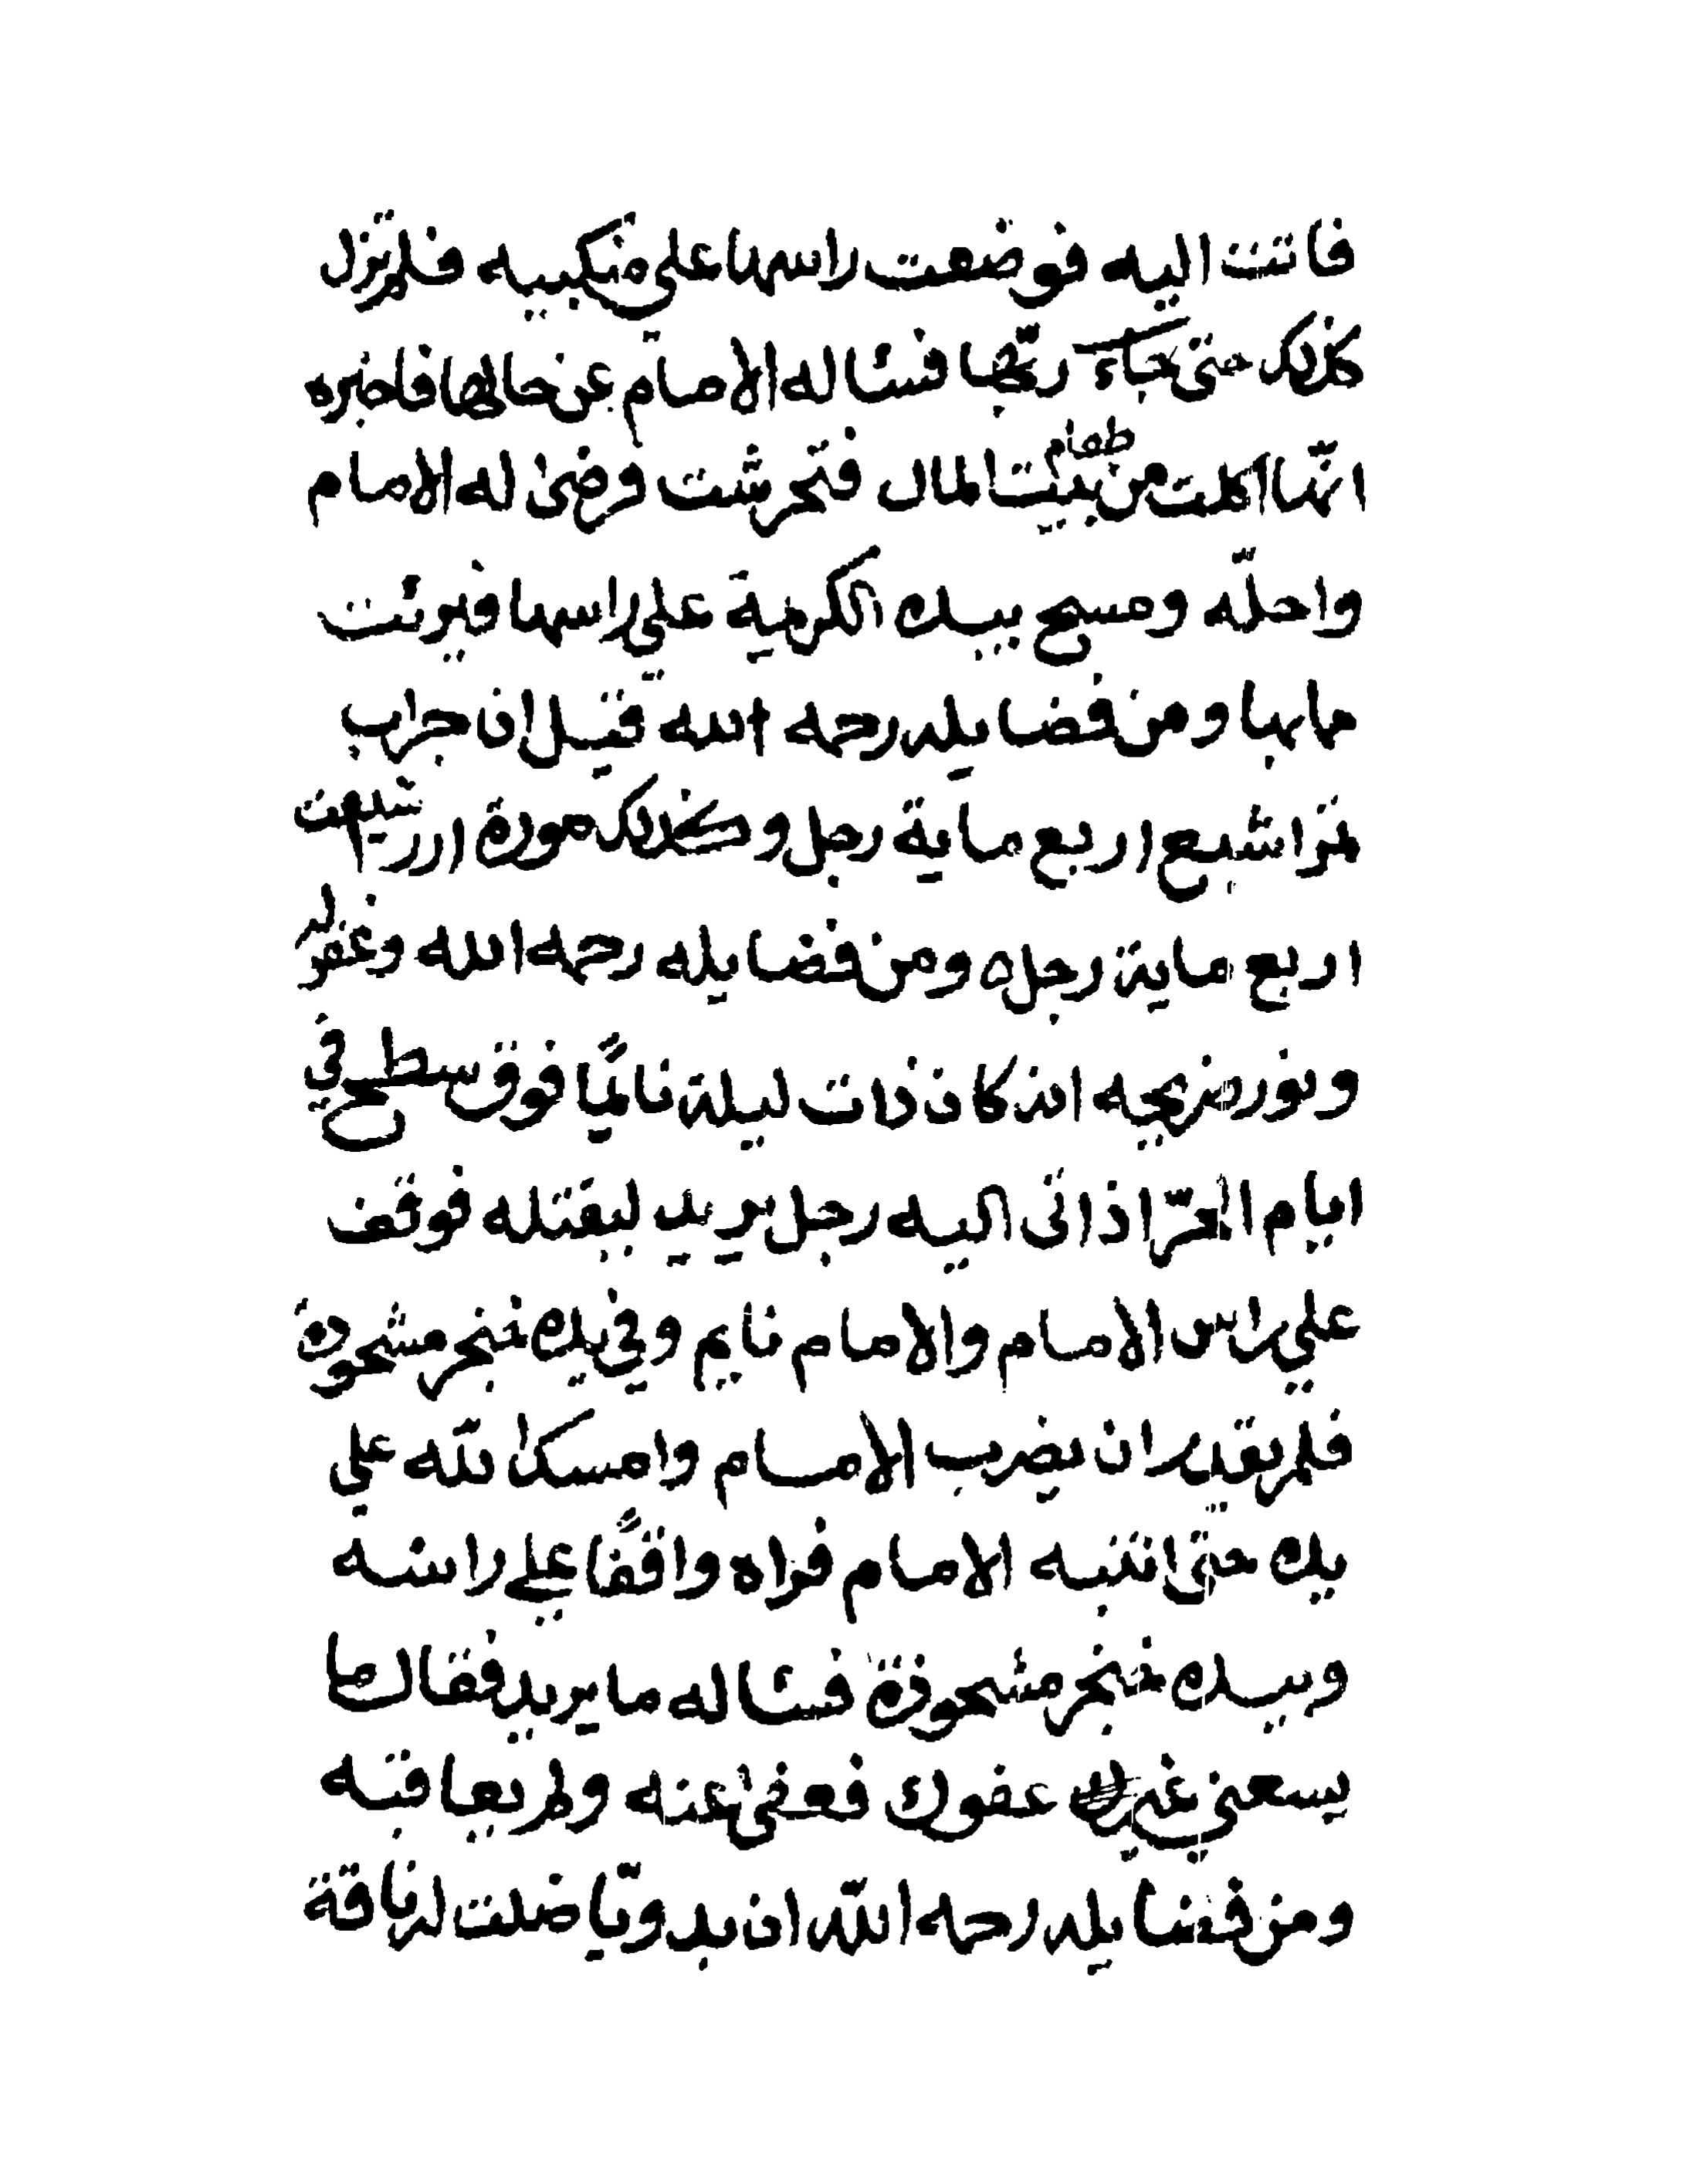 فاتت اليه فوضعت راسها على منكبيه فلم تزل
كذلك حتى جاء ربّها فسئاله الامام عن حالها فاخبره
انّها اكلت من طعام بيت المال فتحرشت فرضى له الامام
واحلّه ومسح بيده الكريمة علي راسها فبرئت
مما بها ومن فضايله رحمه الله قيل ان جراب
تمر اشبع اربع ماية رجل وكذلك مورة ارز اشبعت
اربع ماية رجل ومن فضايله رحمه الله وغفر له
ونور ضريحه انه كان ذات ليلة نايمًا فوق سطح في
ايام الحرّ اذ اتى اليه رجل يريد ليقتله فوقف
علي راس الامام والامام نايم وفي يده خنجر مشحوذة
فلم يقدر ان يضرب الامام وامسك الله علي
يده حتى انتبه الامام فراه واقفًا علي راسه
وبيده خنجر مشحوذة فسئاله ما يريد فقال ما
يسعني غير عفوك فعفى عنه ولم يعاقبه
ومن فضايله رحمه الله ان بدويّا ضلت له ناقة